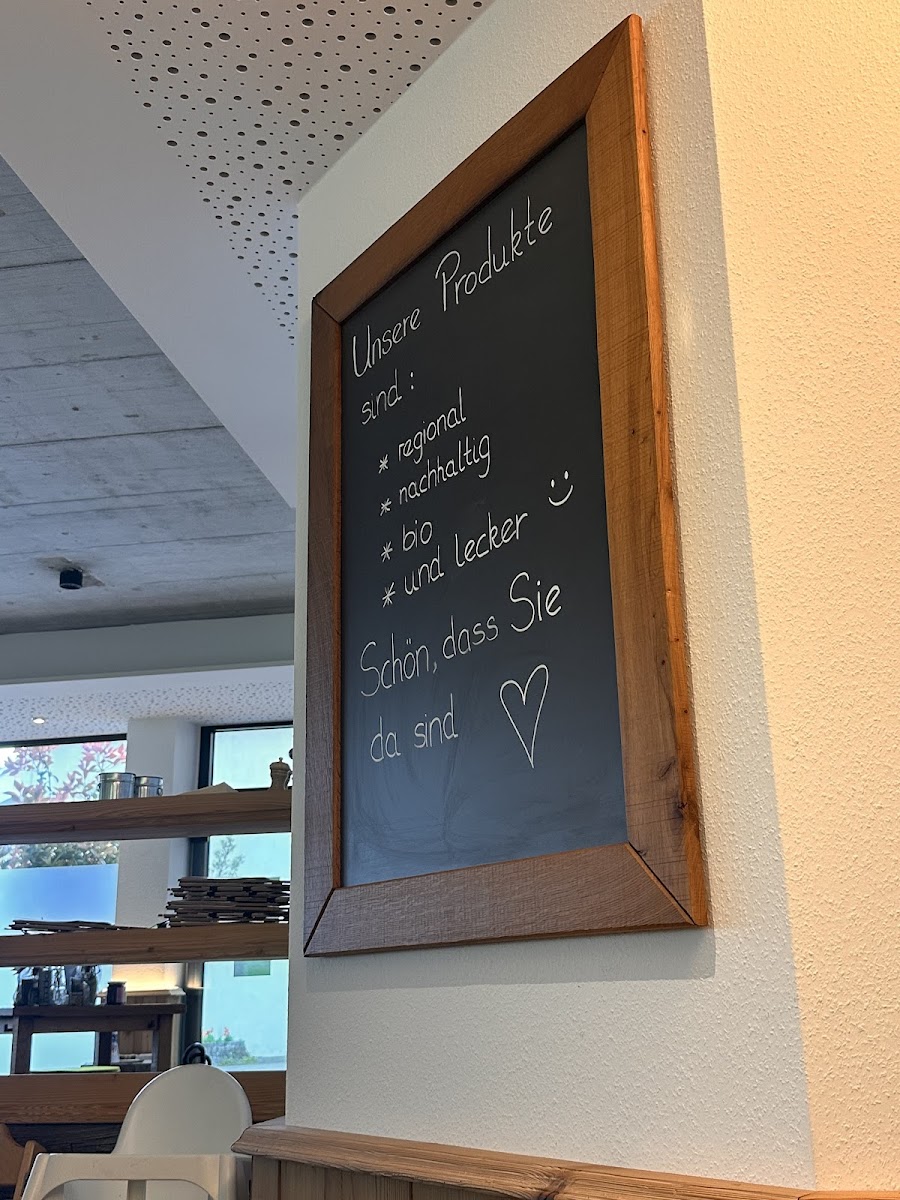 Unsere Produkte
sind :
* regional
* nachhaltig
* bio
* und lecker
Schön, dass Sie
da sind